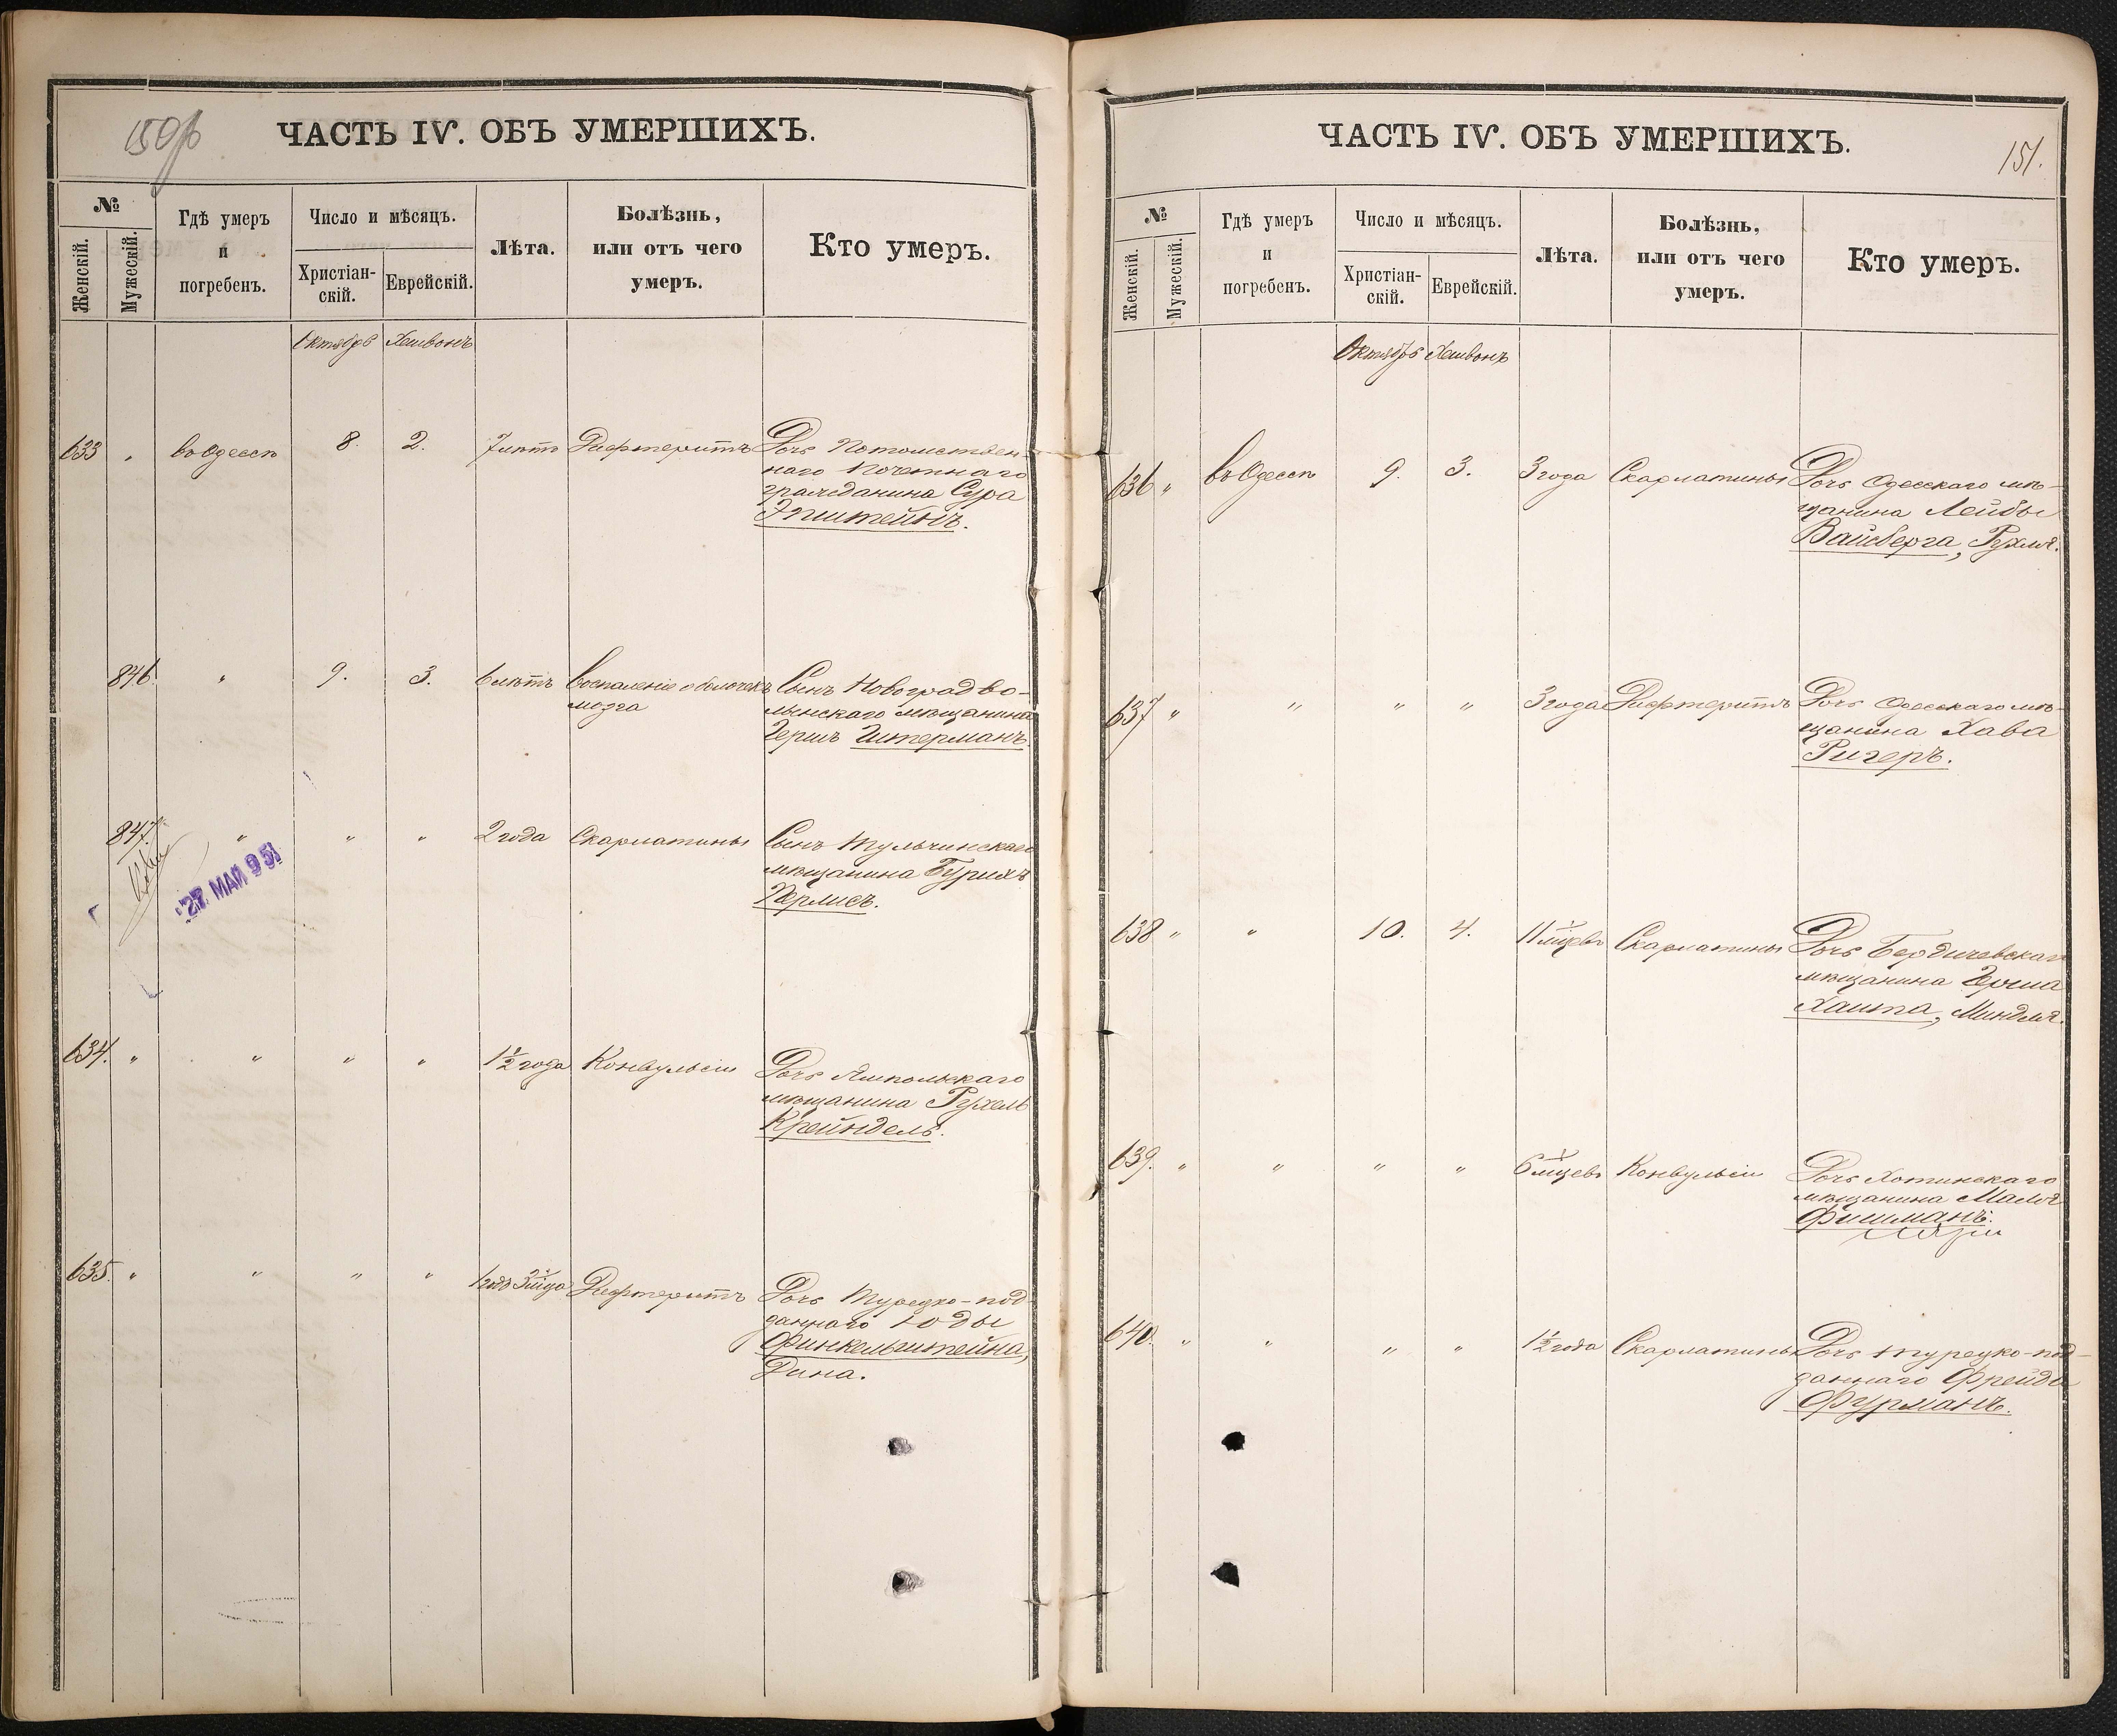 150об
ЧАСТЬ IV. ОБЪ УМЕРШИХЪ.
№
Женскій.
Мужескій.
Гдѣ умеръ
и
погребенъ.
Число и мѣсяцъ.
Христіан-
скій.
Еврейскій.
Лѣта.
Болѣзнь,
или отъ чего
умеръ.
Кто умеръ.
Октябрь Хешвонъ
633 " въ Одессѣ 8. 2. 7 лѣтъ Дифтеритъ Дочь Потомствен-
наго Почетнаго
гражданина Сура
Эпштейнъ.
846. " 9. 3. 6 лѣтъ Воспаленіе оболочекъ Сынъ Новоградво-
мозга лынскаго мѣщанина
Гершъ Гитерманъ.
847. " " " 2 года Скарлатины Сынъ Тульчинскаго
мѣщанина Бурихъ
Перлисъ.
27 МАЙ 951
634. " " " " 1½ года Конвульсіи Дочь Ямпольскаго
мѣщанина Рухель
Крейндель.
635. " " " " 1 годъ 3 м-ца Дифтеритъ Дочь Турецко-под-
даннаго Юды
Финкельштейна,
Дина.
ЧАСТЬ IV. ОБЪ УМЕРШИХЪ.
151.
№
Женскій.
Мужескій.
Гдѣ умеръ
и
погребенъ.
Число и мѣсяцъ.
Христіан-
скій.
Еврейскій.
Лѣта.
Болѣзнь,
или отъ чего
умеръ.
Кто умеръ.
Октябрь Хешвонъ
636 " въ Одессѣ 9. 3. 3 года Скарлатины Дочь Одесскаго мѣ-
щанина Лейбы
Вайсберга, Рухля.
637 " " " " 3 года Дифтеритъ Дочь Одесскаго мѣ-
щанина Хава
Ригеръ.
638 " " 10. 4. 11 м-цевъ Скарлатины Дочь Бердичевскаго
мѣщанина Герша
Хаита, Миндля.
639. " " " " 6 м-цевъ Конвульсіи Дочь Хотинскаго
мѣщанина Маля
Фишманъ.
640. " " " " 1½ года Скарлатины Дочь турецко-под-
даннаго Фрейда
Фурманъ.